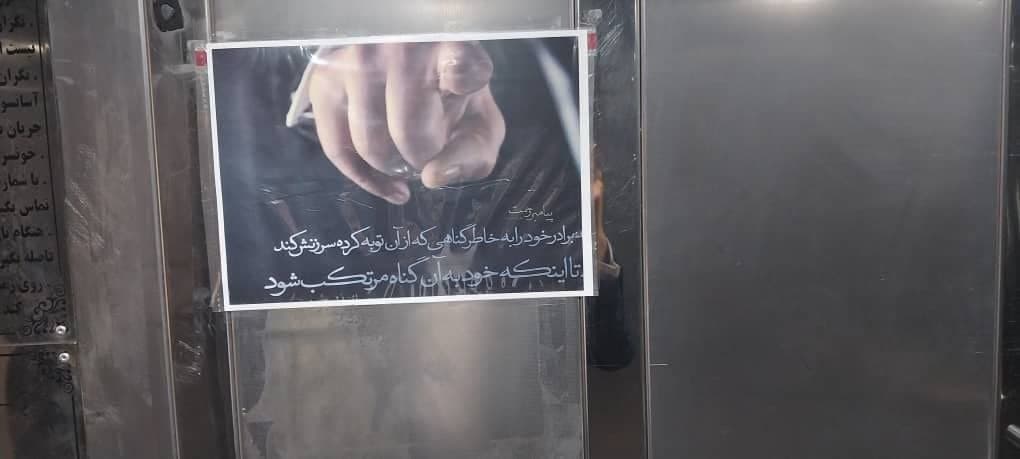 پیامبر رحمت
برادر خود را به خاطر گناهی که از آن توبه کرده سرزنش کند
تا اینکه خود به آن گناه مرتکب شود
. نگران
نیست
. نگران
آسانسو
جریان
. خونسر
. با شمار
تماس بگ
. هنگام
فاصله بگیر
. روی
کند